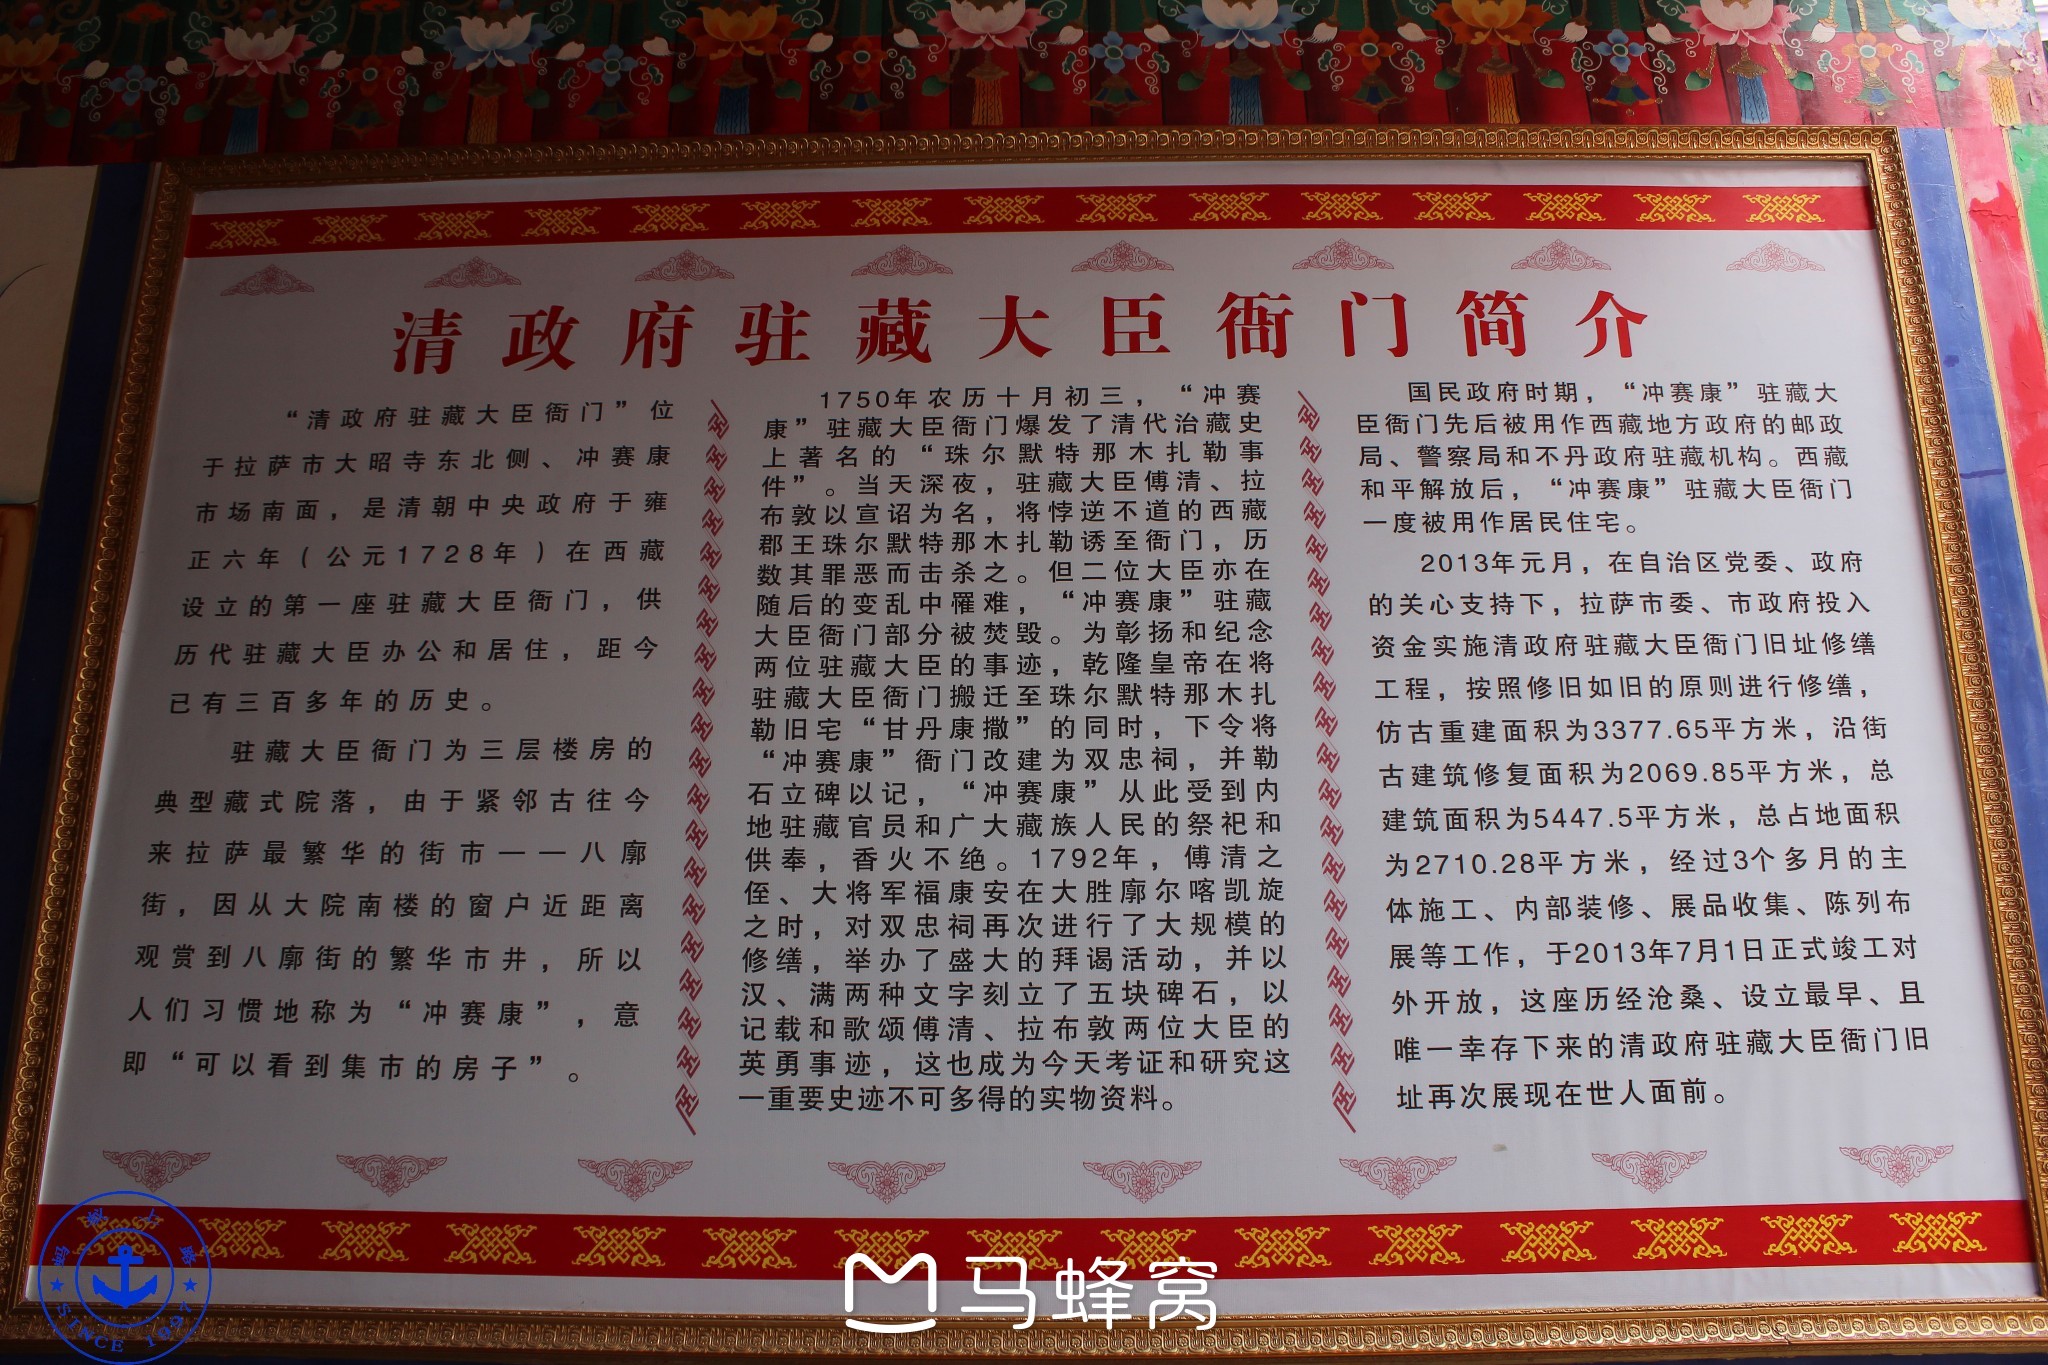 清政府驻藏大臣衙门简介
“清政府驻藏大臣衙门”位
于拉萨市大昭寺东北侧、冲赛康
市场南面，是清朝中央政府于雍
正六年（公元1728年）在西藏
设立的第一座驻藏大臣衙门，供
历代驻藏大臣办公和居住，距今
已有三百多年的历史。
驻藏大臣衙门为三层楼房的
典型藏式院落，由于紧邻古往今
来拉萨最繁华的街市——八廓
街，因从大院南楼的窗户近距离
观赏到八廓街的繁华市井，所以
人们习惯地称为“冲赛康”，意
即“可以看到集市的房子”。
1750年农历十月初三，“冲赛
康”驻藏大臣衙门爆发了清代治藏史
上著名的“珠尔默特那木扎勒事
件”。当天深夜，驻藏大臣傅清、拉
布敦以宣诏为名，将悖逆不道的西藏
郡王珠尔默特那木扎勒诱至衙门，历
数其罪恶而击杀之。但二位大臣亦在
随后的变乱中罹难，“冲赛康”驻藏
大臣衙门部分被焚毁。为彰扬和纪念
两位驻藏大臣的事迹，乾隆皇帝在将
驻藏大臣衙门搬迁至珠尔默特那木扎
勒旧宅“甘丹康撒”的同时，下令将
“冲赛康”衙门改建为双忠祠，并勒
石立碑以记，“冲赛康”从此受到内
地驻藏官员和广大藏族人民的祭祀和
供奉，香火不绝。1792年，傅清之
侄、大将军福康安在大胜廓尔喀凯旋
之时，对双忠祠再次进行了大规模的
修缮，举办了盛大的拜谒活动，并以
汉、满两种文字刻立了五块碑石，以
记载和歌颂傅清、拉布敦两位大臣的
英勇事迹，这也成为今天考证和研究这
一重要史迹不可多得的实物资料。
国民政府时期，“冲赛康”驻藏大
臣衙门先后被用作西藏地方政府的邮政
局、警察局和不丹政府驻藏机构。西藏
和平解放后，“冲赛康”驻藏大臣衙门
一度被用作居民住宅。
2013年元月，在自治区党委、政府
的关心支持下，拉萨市委、市政府投入
资金实施清政府驻藏大臣衙门旧址修缮
工程，按照修旧如旧的原则进行修缮，
仿古重建面积为3377.65平方米，沿街
古建筑修复面积为2069.85平方米，总
建筑面积为5447.5平方米，总占地面积
为2710.28平方米，经过3个多月的主
体施工、内部装修、展品收集、陈列布
展等工作，于2013年7月1日正式竣工对
外开放，这座历经沧桑、设立最早、且
唯一幸存下来的清政府驻藏大臣衙门旧
址再次展现在世人面前。
SINCE 1997
马蜂窝